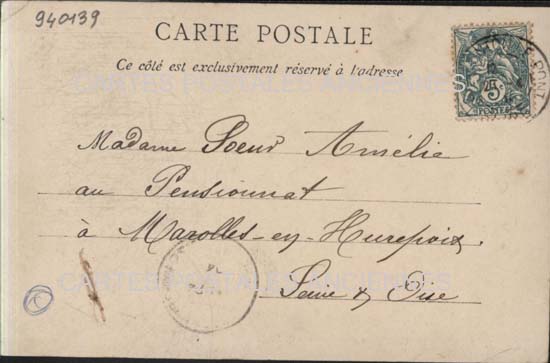 940139
CARTE POSTALE
Ce côté est exclusivement réservé à l'adresse
CARTES POSTALES ANCIENNES
5
POSTES
Madame Soeur Amélie
au Pensionnat
à Marolles-en-Hurepoix
CARTES POSTALES ANCIENNES
Seine & Oise